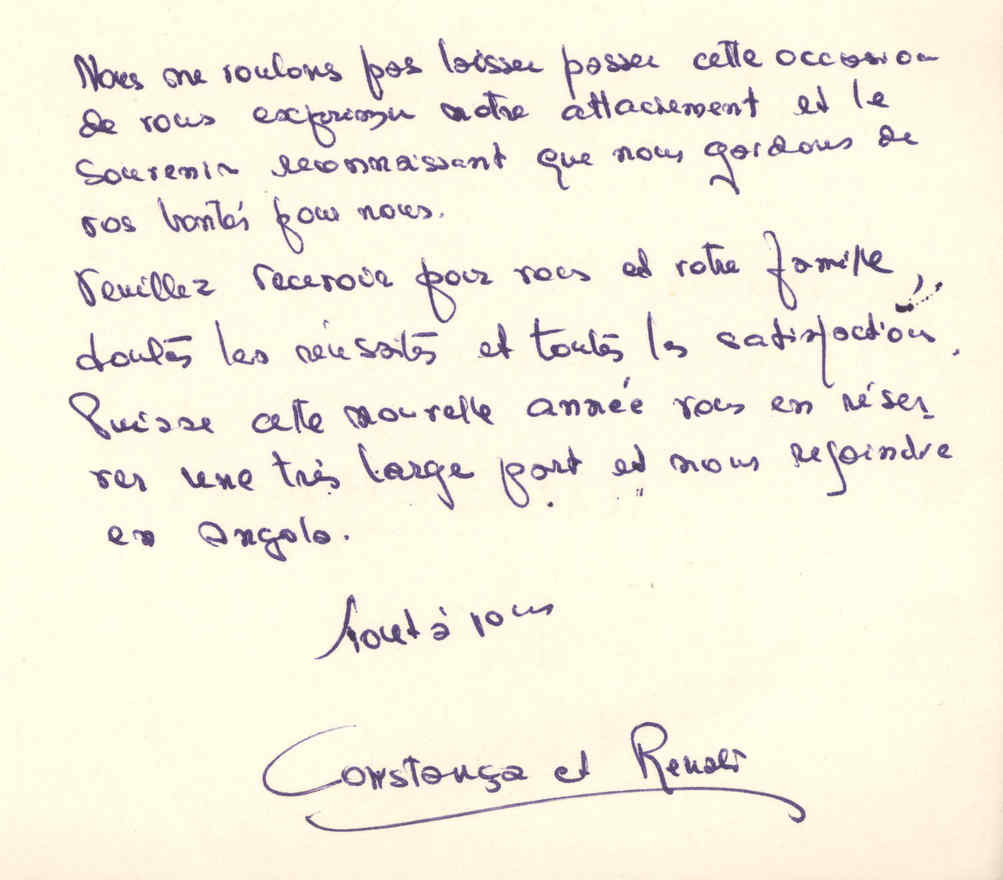 Nous ne voulons pas laisser passer cette occasion
de vous exprimer notre attachement et le
souvenir reconnaissant que nous gardons de
vos bontés pour nous.
Veuillez recevoir pour vous et votre famille,
toutes les réussites et toutes les satisfactions.
Puisse cette nouvelle année vous en réser
ver une très large part et nous rejoindre
en Angola.
Tout à vous
Constança et